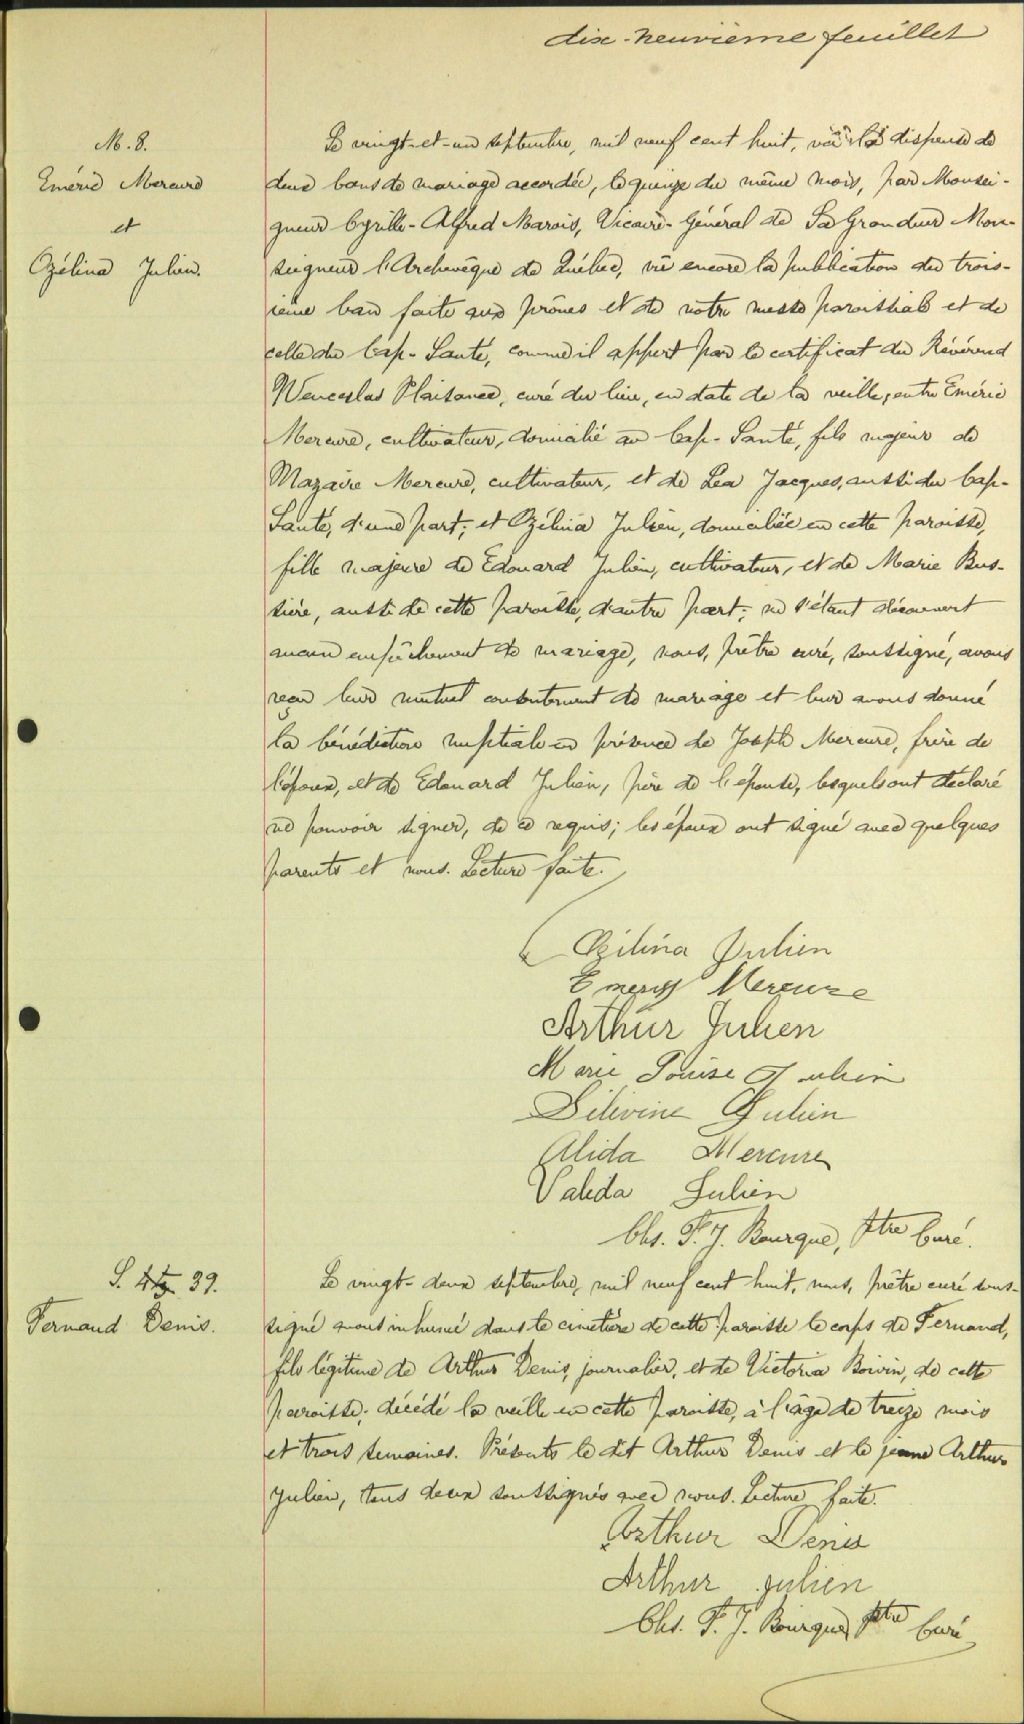 dix-neuvième feuillet
M. 8.
Eméric Mercure
et
Ozélina Julien.
Le vingt-et-un septembre, mil neuf cent huit, vu la dispense de
deux bans de mariage accordée, le quinze du même mois, par Monsei-
gneur Cyrille-Alfred Marois, Vicaire-Général de Sa Grandeur Mon-
seigneur l'Archevêque de Québec, vû encore la publication du trois-
ième ban faite aux prônes et de notre messe paroissiale et de
celle du Cap-Santé, comme il appert par le certificat du Révérend
Wenceslas Plaisance, curé du lieu, en date de la veille, entre Eméric
Mercure, cultivateur, domicilié au Cap-Santé, fils majeur de
Mazaire Mercure, cultivateur, et de Léa Jacques, aussi du Cap-
Santé, d'une part; et Ozélina Julien, domiciliée en cette paroisse,
fille majeure de Edouard Julien, cultivateur, et de Marie Bus-
sière, aussi de cette paroisse, d'autre part; ne s'étant découvert
aucun empêchement de mariage, nous, prêtre curé, soussigné, avons
reçu leur mutuel consentement de mariage et leur avons donné
la bénédiction nuptiale en présence de Joseph Mercure, frère de
l'époux, et de Edouard Julien, père de l'épouse, lesquels ont déclaré
ne pouvoir signer, de ce requis; les époux ont signé avec quelques
parents et nous. Lecture faite.
Ozélina Julien
Emery Mercure
Arthur Julien
Marie Louise Julien
Silivine Julien
Alida Mercure
Valida Julien
Chs. F. J. Bourque, ptre Curé.
S. 39.
Fernand Denis.
Le vingt-deux septembre, mil neuf cent huit, nous, prêtre curé sous-
signé avons inhumé dans le cimetière de cette paroisse le corps de Fernand,
fils légitime de Arthur Denis, journalier, et de Victoria Boivin, de cette
paroisse, décédé la veille en cette paroisse, à l'âge de treize mois
et trois semaines. Présents le dit Arthur Denis et le jeune Arthur
Julien, tous deux soussignés avec nous. Lecture faite.
Arthur Denis
Arthur Julien
Chs. F. J. Bourque, ptre Curé